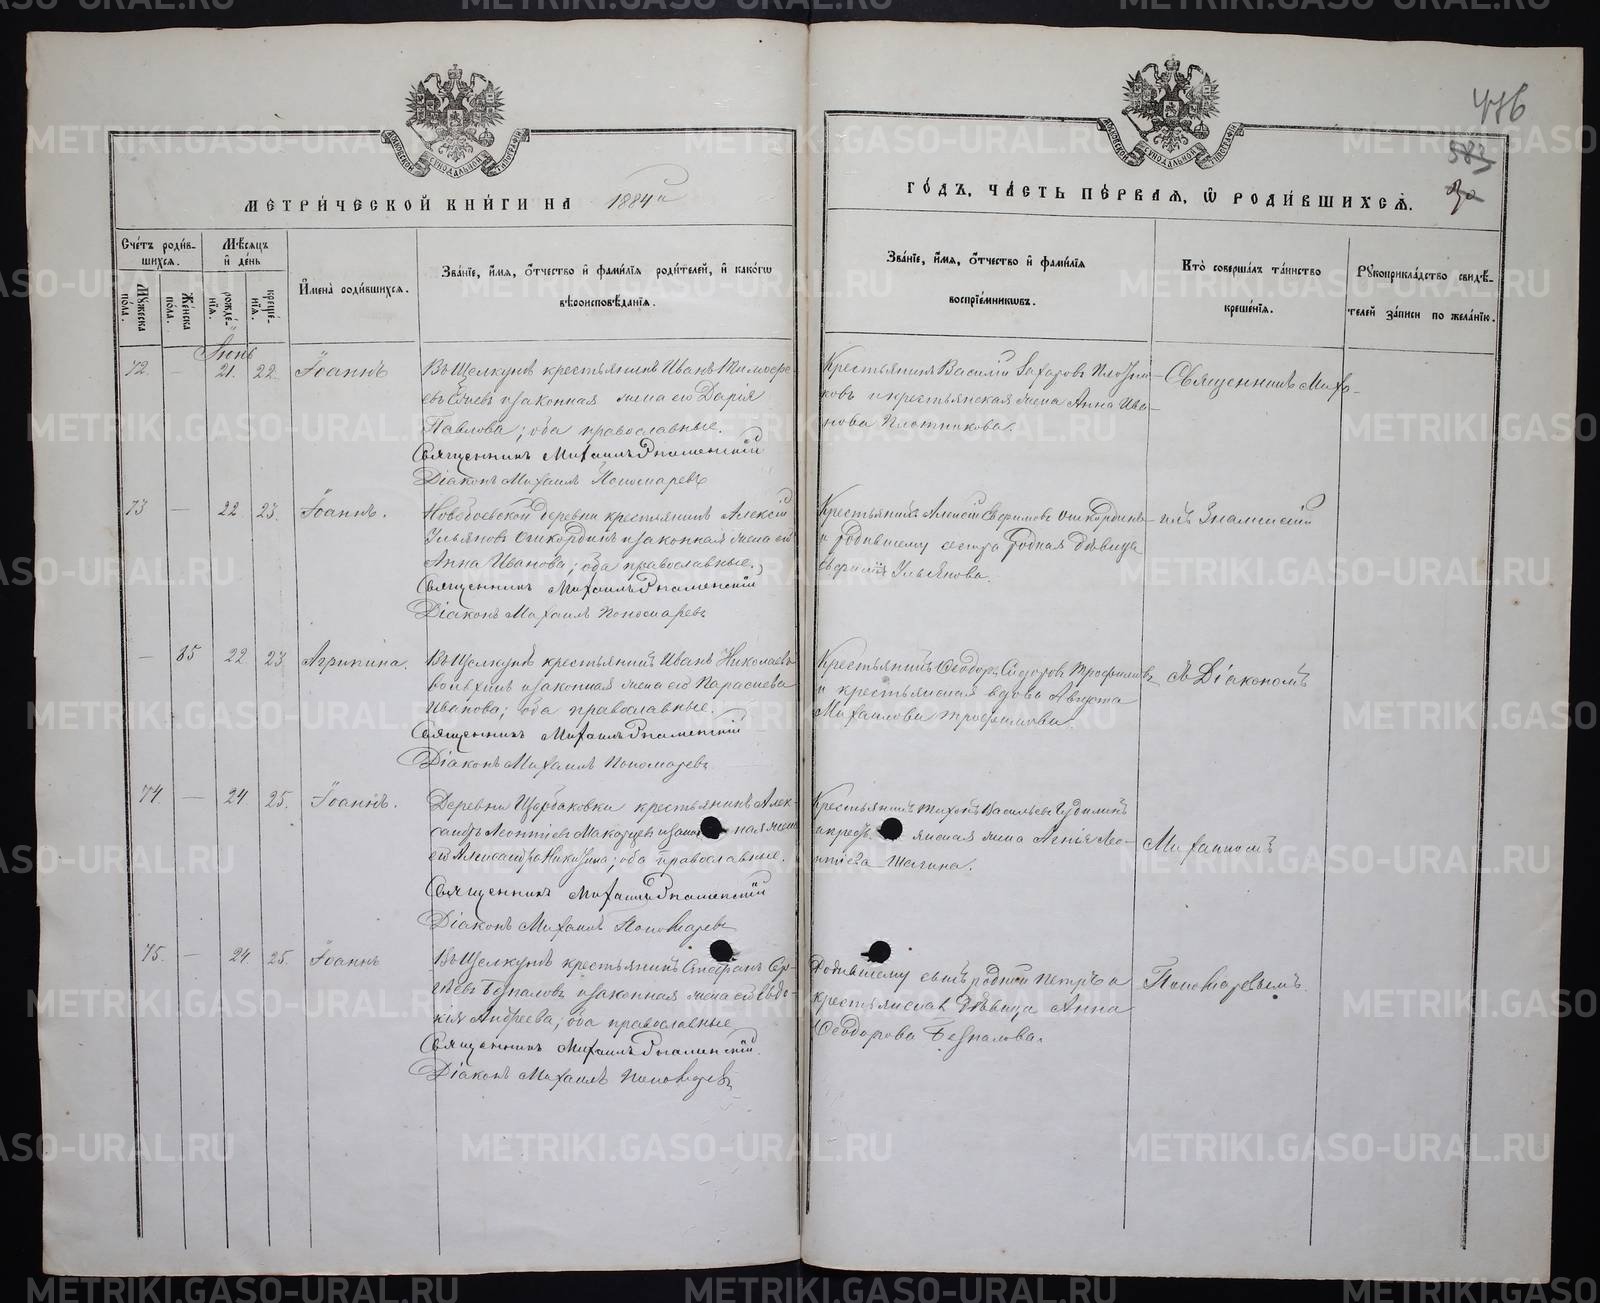 МЕТРИЧЕСКОЙ КНИГИ НА 1884й
Счетъ родившихся.
Мѣсяцъ и день
Имена родившихся.
Званіе, имя, отчество и фамилія родителей, и какого вѣроисповѣданія.
Мужеска пола.
Женска пола.
рожденія.
крещенія.
Іюнь
72. — 21. 22. Іоаннъ
Въ Щелкунѣ крестьянинъ Иванъ Тимофе-
евъ и законная жена его Дарія
Павлова; оба православные.
Священникъ Михаилъ Знаменскій
Діаконъ Михаилъ Пономаревъ
73 — 22 23. Іоаннъ.
деревни крестьянинъ Алексій
Ульяновъ и законная жена его
Анна Иванова; оба православные.
Священникъ Михаилъ Знаменскій
Діаконъ Михаилъ Пономаревъ
— 85 22 23 Агрипина.
Въ Щелкунѣ крестьянинъ Иванъ Николаевъ
и законная жена его Параскева
Иванова; оба православные.
Священникъ Михаилъ Знаменскій
Діаконъ Михаилъ Пономаревъ
74. — 24 25. Іоаннъ.
Деревни Щербаковки крестьянинъ Алек-
сандръ Леонтіевъ и законная жена
его Александра Никитина; оба православные.
Священникъ Михаилъ Знаменскій
Діаконъ Михаилъ Пономаревъ
75. — 24. 25. Іоаннъ
Въ Щелкунѣ крестьянинъ Стефанъ Сер-
гѣевъ Безпаловъ и законная жена его Евдо-
кія Андреева; оба православные
Священникъ Михаилъ Знаменскій.
Діаконъ Михаилъ Пономаревъ
416
583
ГОДЪ, ЧАСТЬ ПЕРВАЯ, Ѡ РОДИВШИХСЯ.
Званіе, имя, отчество и фамилія воспріемниковъ.
Кто совершалъ таинство крещенія.
Рукоприкладство свидѣтелей записи по желанію.
Крестьянинъ Василій Захаровъ Плотни-
ковъ и крестьянская жена Анна Ива-
нова Плотникова.
Священникъ Миха-
Крестьянинъ Алексій Евфимовъ
и родившему сестра родная дѣвица
Евфимія Ульянова.
илъ Знаменскій
Крестьянинъ Ѳеодоръ Сидоровъ Трофимовъ
и крестьянская вдова Августа
Михаилова Трофимова.
съ Діакономъ
Крестьянинъ Тихонъ Васильевъ
и крестьянская жена Агнія Лео-
нтіева
Михаиломъ
Родившему сынъ родной Петръ и
крестьянская дѣвица Анна
Ѳеодорова Безпалова.
Пономаревымъ.
METRIKI.GASO-URAL.RU